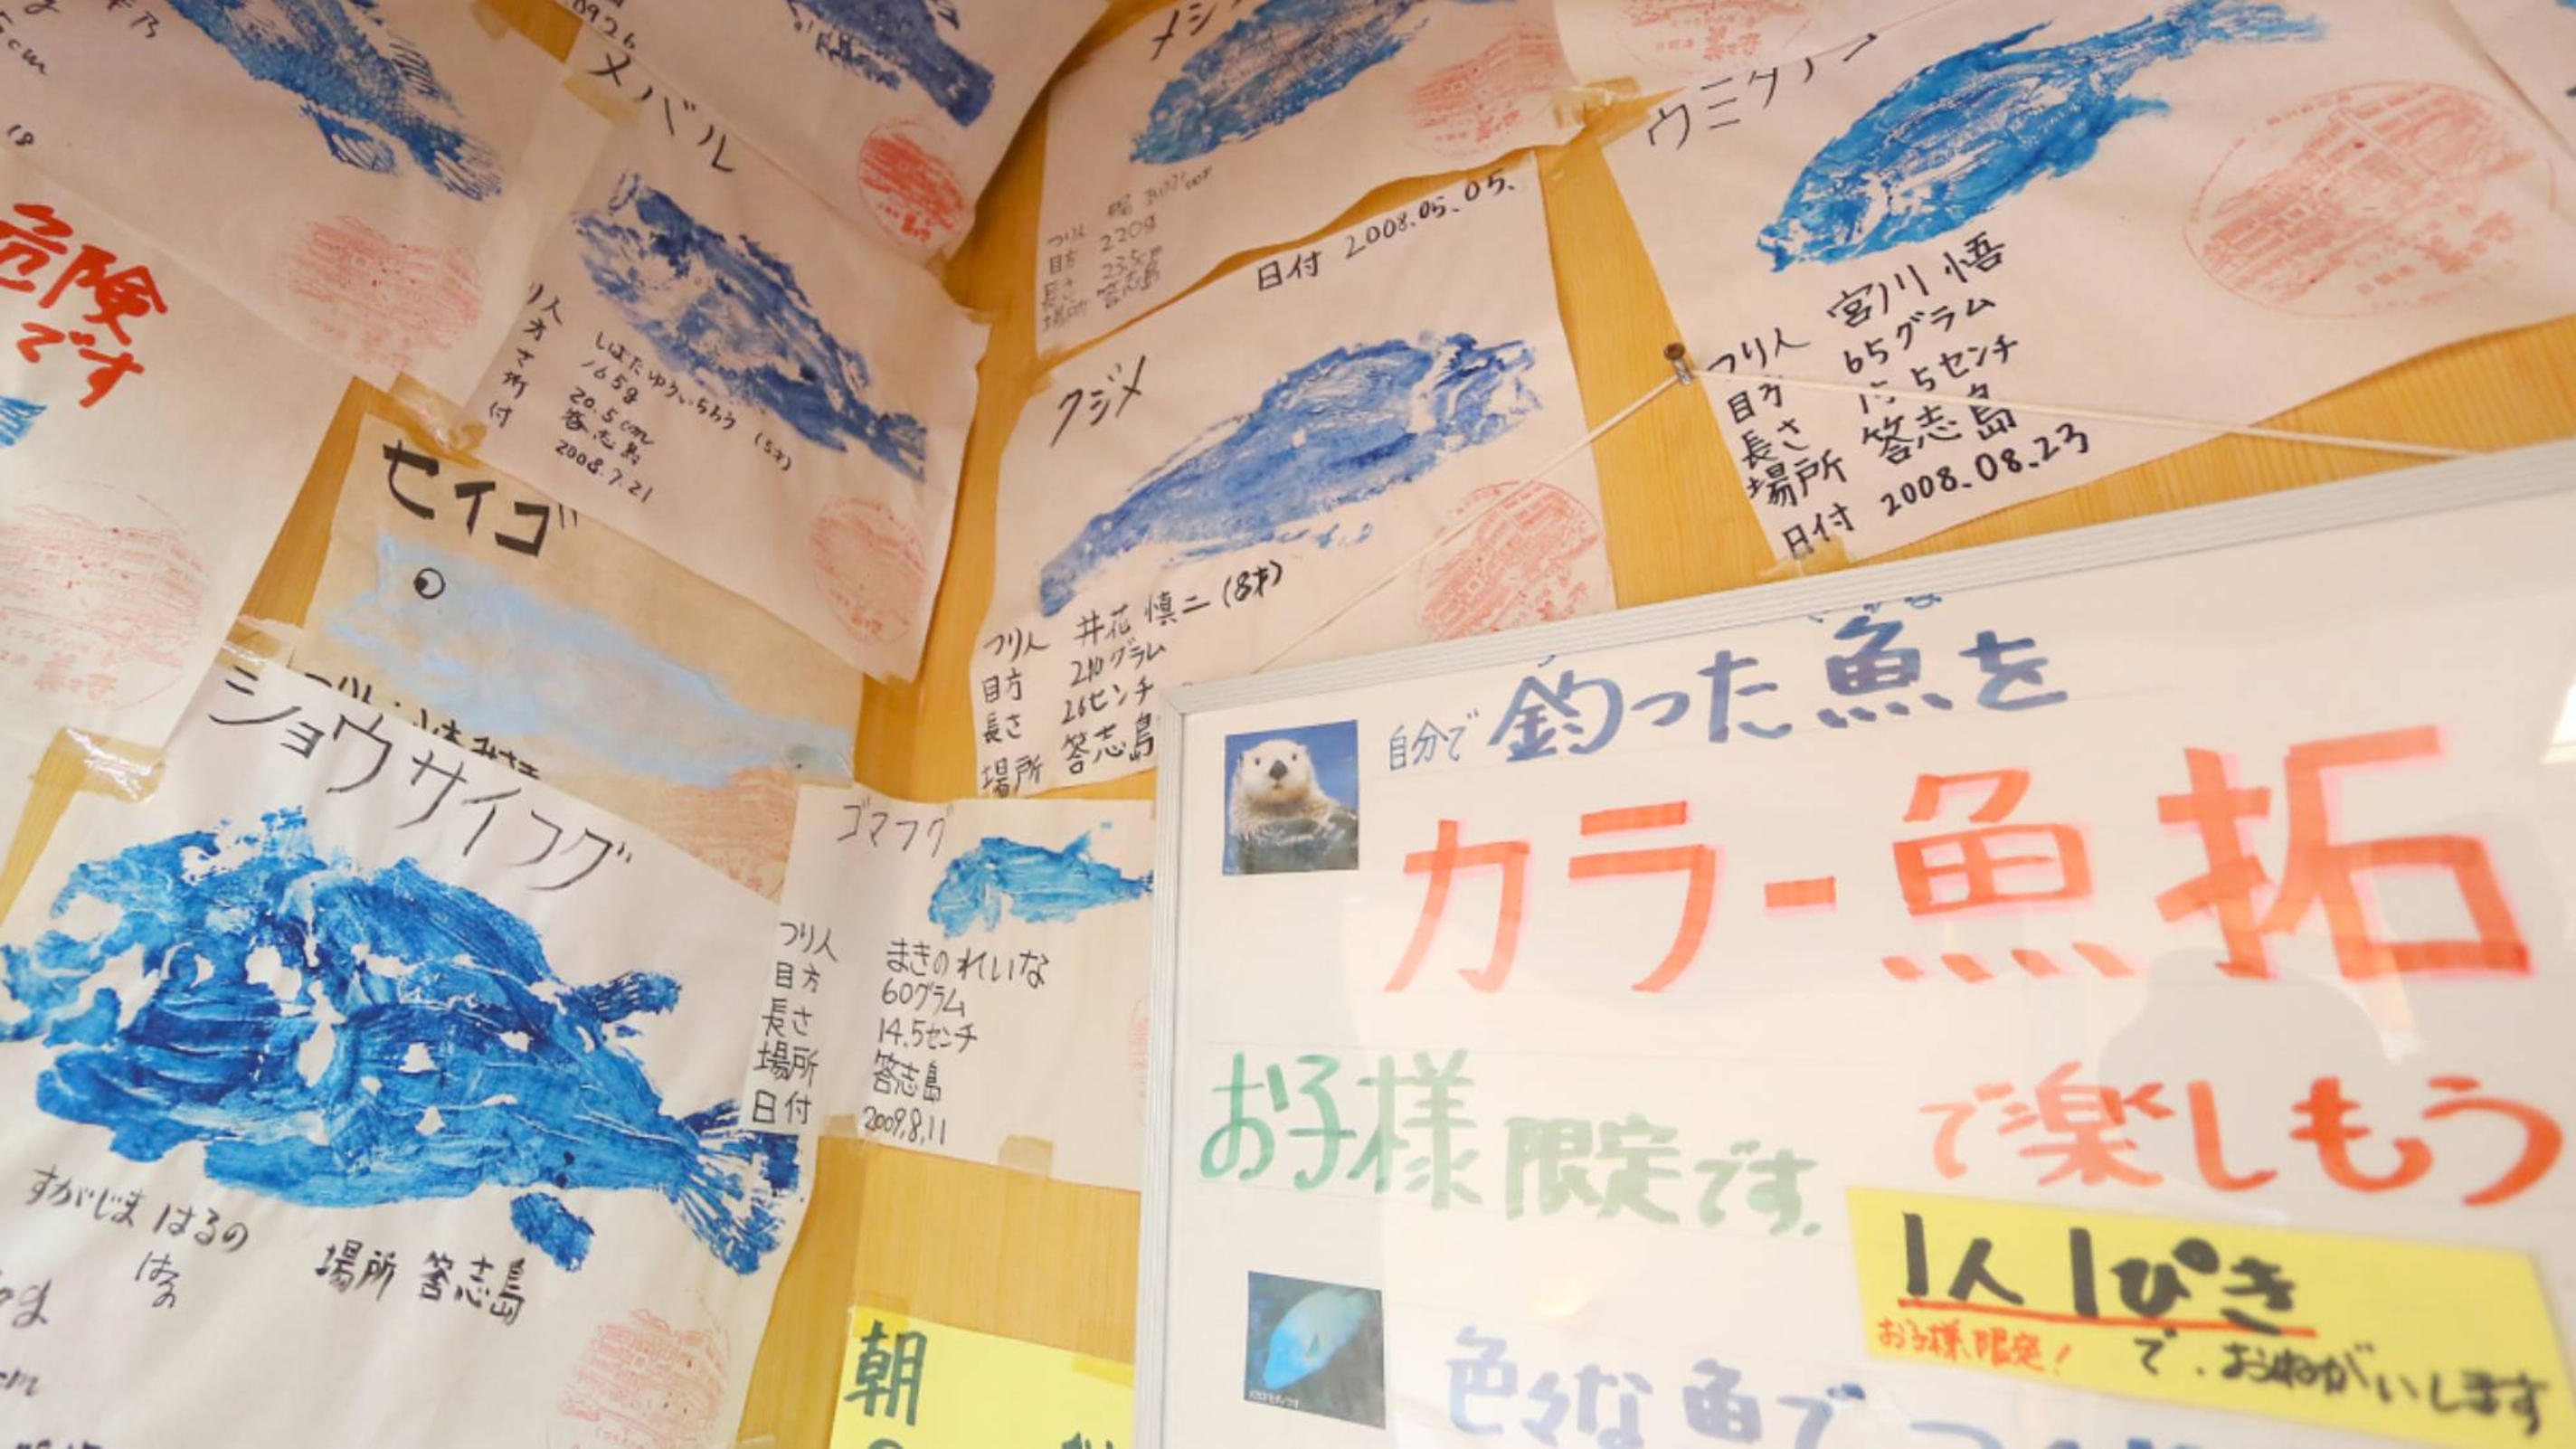 0926
メバル
しばたゆういちろう (5才)
165g
20.5cm
答志島
2008.7.21
危険
です
セイゴ
ショウサイフグ
すがじま はるの
場所 答志島
220g
23.5cm
答志島
目方
長さ
場所
日付 2008.05.05.
クジメ
つり人 井花 慎二 (8才)
目方 210グラム
長さ 26センチ
場所 答志島
ウミタナゴ
つり人 宮川 悟
目方 65グラム
長さ 5センチ
場所 答志島
日付 2008.08.23
ゴマフグ
つり人 まきのれいな
目方 60グラム
長さ 14.5センチ
場所 答志島
日付 2009.8.11
自分で釣った魚を
カラー魚拓
で楽しもう
お子様限定です.
1人1ぴき
お子様限定! で.おねがいします
色々な魚で
朝